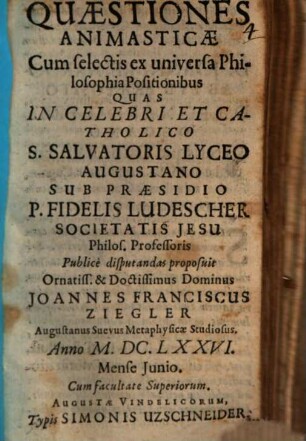 QUÆSTIONES
ANIMASTICÆ
Cum selectis ex universa Phi-
losophia Positionibus
QUAS
IN CELEBRI ET CA-
THOLICO
S. SALVATORIS LYCEO
AUGUSTANO
SUB PRÆSIDIO
P. FIDELIS LUDESCHER
SOCIETATIS JESU
Philos. Professoris
Publicè disputandas proposuit
Ornatiss. & Doctissimus Dominus
JOANNES FRANCISCUS
ZIEGLER
Augustanus Suevus Metaphysicæ Studiosus.
Anno M. DC. LXXVI.
Mense Junio.
Cum facultate Superiorum.
AUGUSTÆ VINDELICORUM,
Typis SIMONIS UZSCHNEIDER.